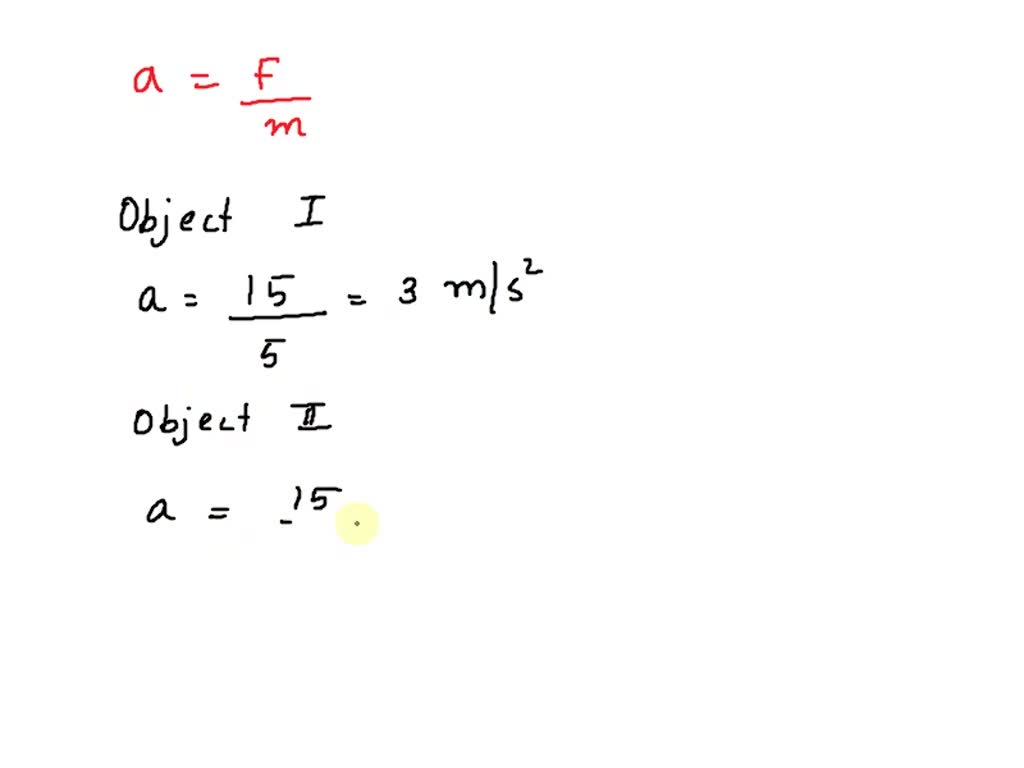 a = F/m
Object I
a = 15/5 = 3 m/s²
Object II
a = 15